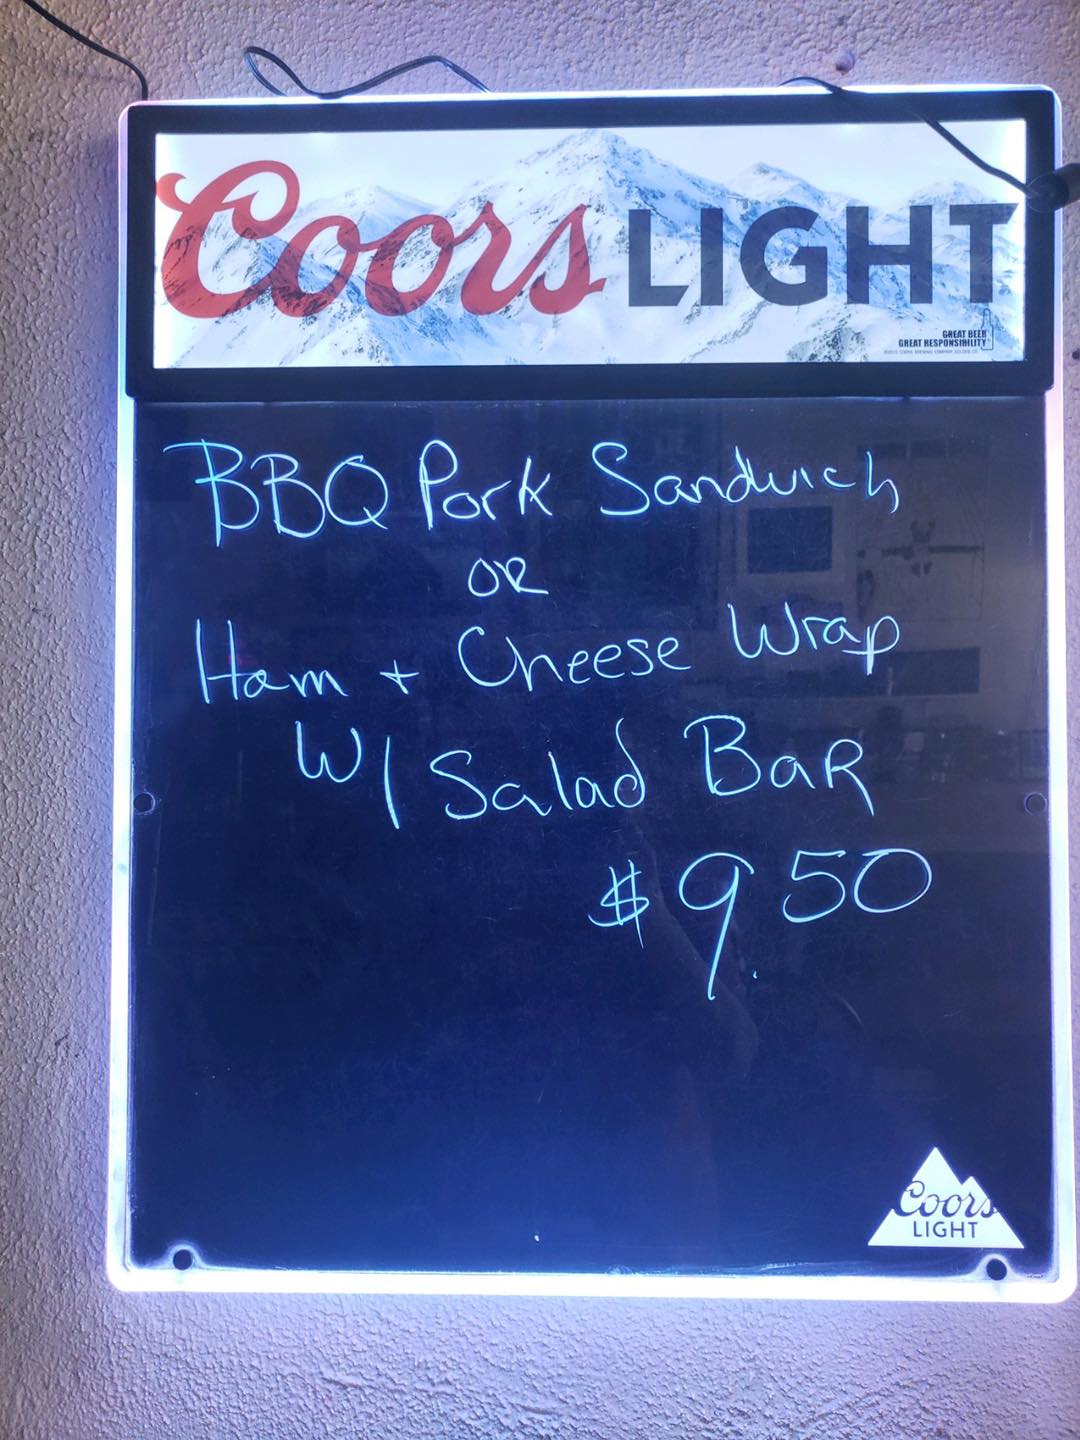 Coors LIGHT
GREAT BEER
GREAT RESPONSIBILITY
BBQ Pork Sandwich
OR
Ham + Cheese Wrap
W/ Salad Bar
$9.50
Coors
LIGHT